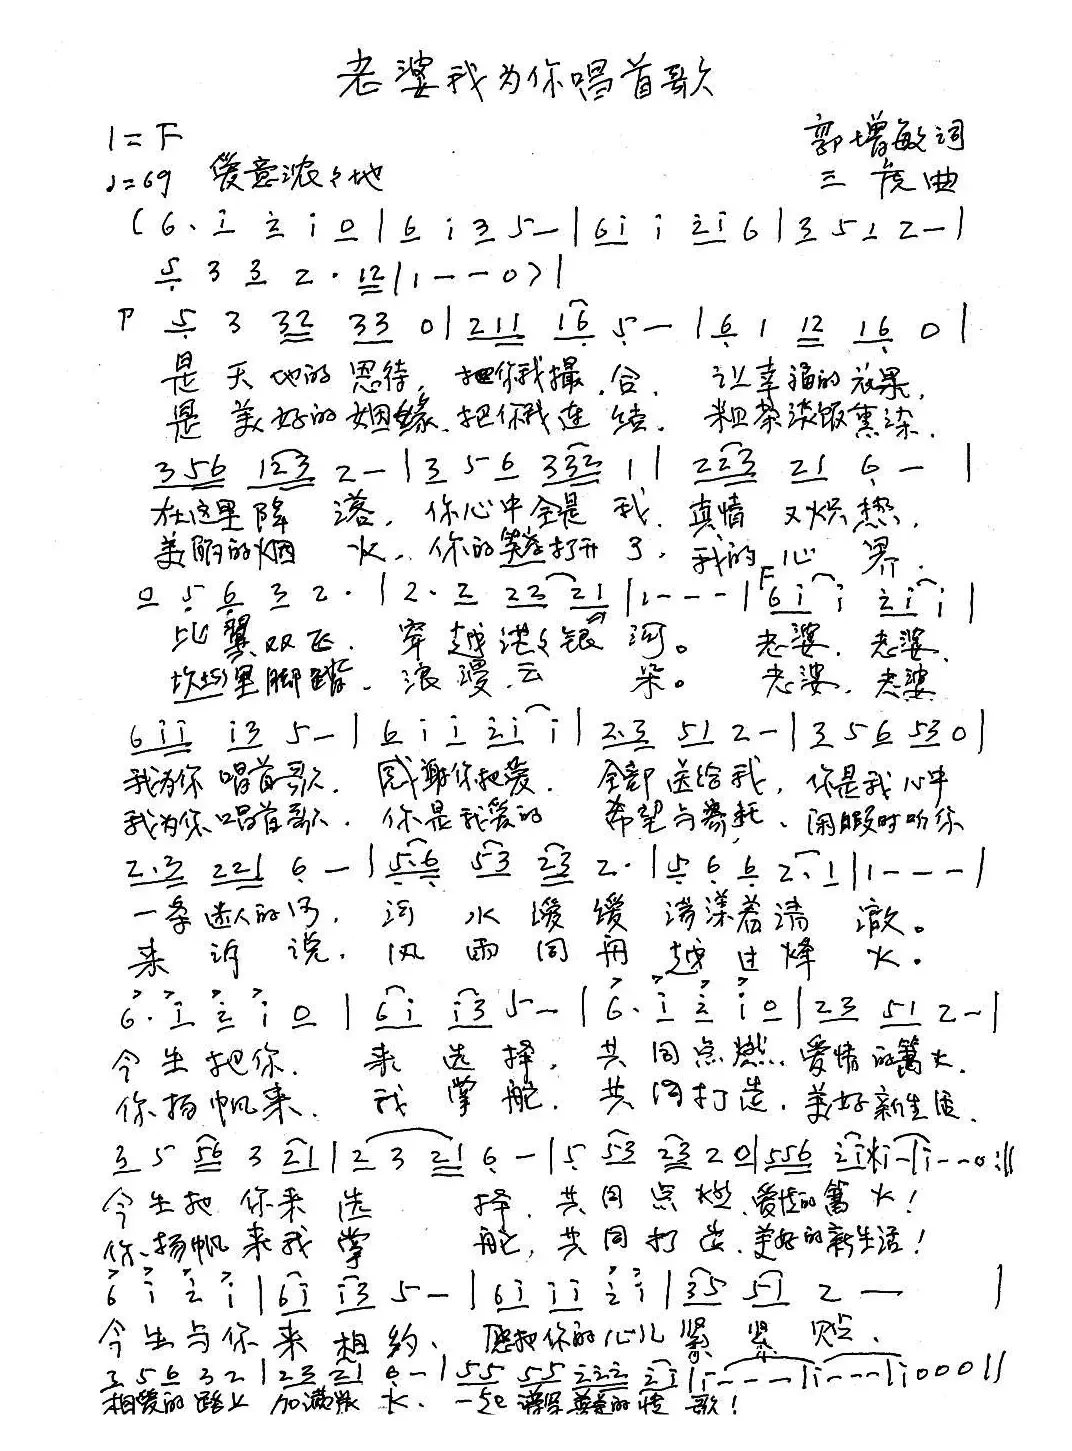 老婆我为你唱首歌
1=F
郭增敏词
♩=69 爱意浓々地
三虎曲
(6· i 2 i 0 | 6 i 3 5 — | 6i i 2i 6 | 3 5 1 2 — |
5 3 3 2 · 12 | 1 — — 0) |
P 5 3 32 33 0 | 211 16 5 — | 6 1 12 16 0 |
是天地的恩待，把你我撮合．让幸福的效果，
是美好的姻缘．把你我连结．粗茶淡饭熏染．
356 123 2 — | 3 5 6 332 1 | 223 21 6 — |
在这里降落．你心中全是我．真情又炽热，
美丽的烟火．你的笑容打开了，我的心界．
0 5 6 3 2 · | 2 · 2 22 21 | 1 — — — | F 6i i 2i i |
比翼双飞．穿越茫々银河。老婆．老婆．
坎坷里脚踏．浪漫云朵。老婆．老婆
6ii i3 5 — | 6 i i 2i i | 2·3 51 2 — | 3 5 6 53 0 |
我为你唱首歌．感谢你把爱．全部送给我，你是我心中
我为你唱首歌．你是我爱的希望与寄托、闲暇时听你
2·3 221 6 — | 5·6 53 23 2 · | 5 6 6 2·1 | 1 — — — |
一条迷人的河，河水缓缓荡漾着清澈。
来诉说．风雨同舟越过烽火。
6 · i 2 i 0 | 6i i3 5 — | 6 · i 2 i 0 | 23 51 2 — |
今生把你．来选择，共同点燃．爱情的篝火．
你扬帆来．我掌舵．共同打造．美好新生活．
3 5 56 3 21 | 2 3 21 6 — | 5 53 23 2 0 | 556 2i i — | i — — 0 :||
今生把你来选择．共同点燃．爱情的篝火！
你扬帆来我掌舵，共同打造．美好的新生活！
6 i 2 i | 6i i3 5 — | 6i ii 2 i | 35 51 2 — |
今生与你来相约、愿把你的心儿紧紧贴．
3 5 6 3 2 | 23 21 6 — | 55 55 222 2i | i — — — | i — — — | i 0 0 0 ||
相爱的路上加满浆水．一起谱写的情歌！